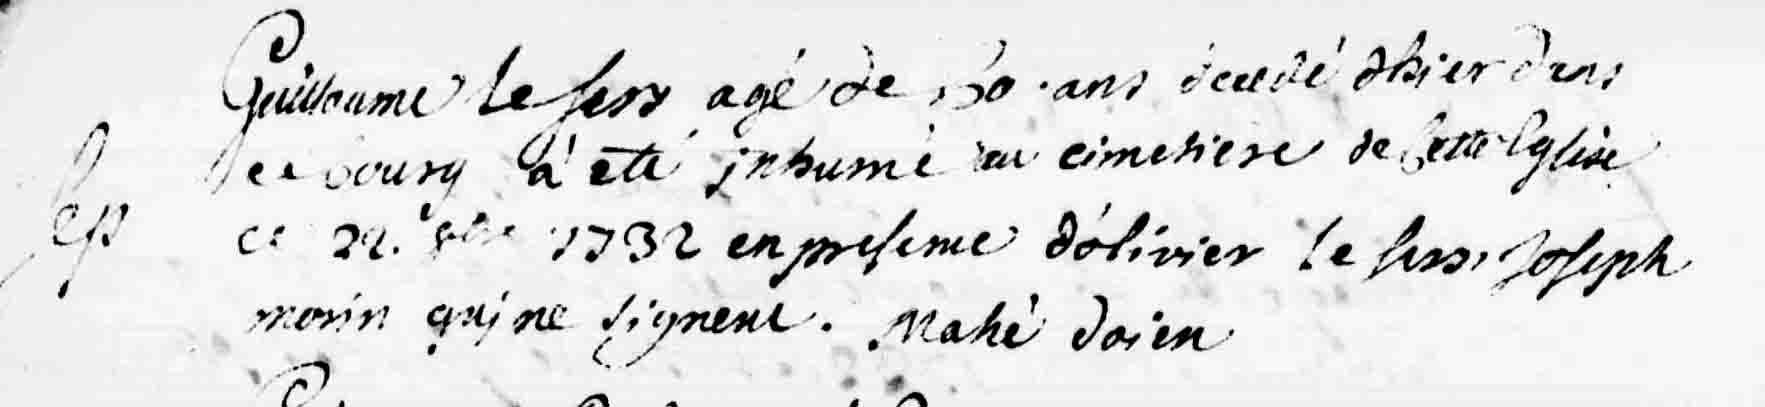 Guillaume Le fers agé de 50 ans decedé d'hier dans
ce bourg à eté jnhumé au cimetiere de Cette Eglise
ce 22.e 1732 en presence d'olivier le fers, Joseph
morin qui ne signent. Mahé doien